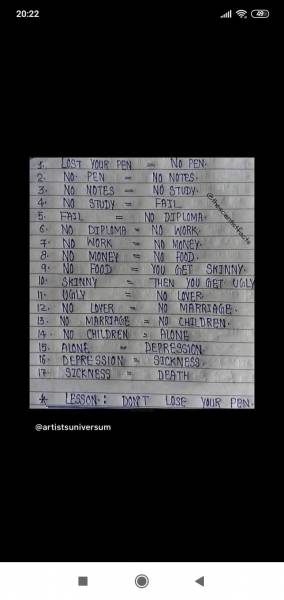 20:22
49
1. LOST YOUR PEN = NO PEN.
2. NO PEN = NO NOTES.
3. NO NOTES = NO STUDY.
4. NO STUDY = FAIL
5. FAIL = NO DIPLOMA.
6. NO DIPLOMA = NO WORK.
7. NO WORK = NO MONEY.
8. NO MONEY = NO FOOD.
9. NO FOOD = YOU GET SKINNY.
10. SKINNY = THEN YOU GET UGLY
11. UGLY = NO LOVER.
12. NO LOVER = NO MARRIAGE.
13. NO MARRIAGE = NO CHILDREN.
14. NO CHILDREN = ALONE
15. ALONE = DEPRESSION.
16. DEPRESSION = SICKNESS.
17. SICKNESS = DEATH
* LESSON: DON'T LOSE YOUR PEN.
@artistsuniversum